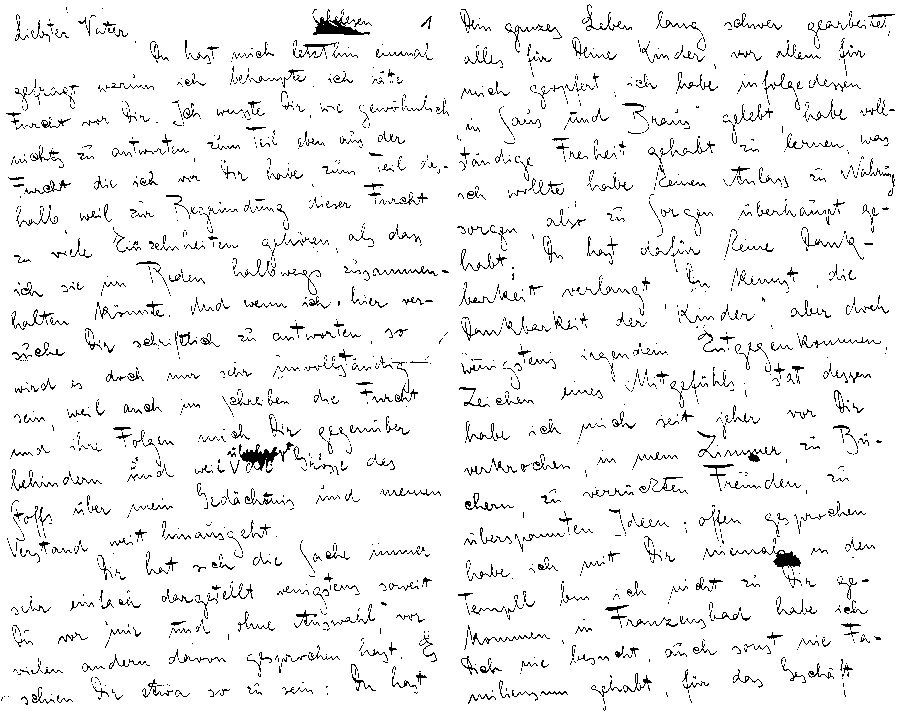 Liebster Vater,
Schelesen
1
Du hast mich letzthin einmal
gefragt warum ich behaupte ich hätte
Furcht vor Dir. Ich wusste Dir, wie gewöhnlich
nichts zu antworten, zum Teil eben aus der
Furcht die ich vor Dir habe, zum Teil des-
halb, weil zur Begründung dieser Furcht
zu viele Einzelnheiten gehören, als dass
ich sie im Reden halbwegs zusammen-
halten könnte. Und wenn ich hier ver-
suche Dir schriftlich zu antworten, so
wird es doch nur sehr unvollständig
sein, weil auch im Schreiben die Furcht
und ihre Folgen mich Dir gegenüber
behindern und weil die Grösse des
Stoffs über mein Gedächtnis und meinen
Verstand weit hinausgeht.
Dir hat sich die Sache immer
sehr einfach dargestellt wenigstens soweit
Du vor mir und, ohne Auswahl, vor
vielen andern davon gesprochen hast. Es
schien Dir etwa so zu sein: Du hast
Dein ganzes Leben lang schwer gearbeitet,
alles für Deine Kinder, vor allem für
mich geopfert, ich habe infolgedessen
„in Saus und Braus" gelebt, habe voll-
ständige Freiheit gehabt zu lernen was
ich wollte, habe keinen Anlass zu Nahrungs-
sorgen, also zu Sorgen überhaupt ge-
habt; Du hast dafür keine Dank-
barkeit verlangt, Du kennst „die
Dankbarkeit der Kinder", aber doch
wenigstens irgendein Entgegenkommen,
Zeichen eines Mitgefühls; statt dessen
habe ich mich seit jeher vor Dir
verkrochen, in mein Zimmer, zu Bü-
chern, zu verrückten Freunden, zu
überspannten Ideen; offen gesprochen
habe ich mit Dir niemals, in den
Tempel bin ich nicht zu Dir ge-
kommen, in Franzensbad habe ich
Dich nie besucht, auch sonst nie Fa-
miliensinn gehabt, für das Geschäft